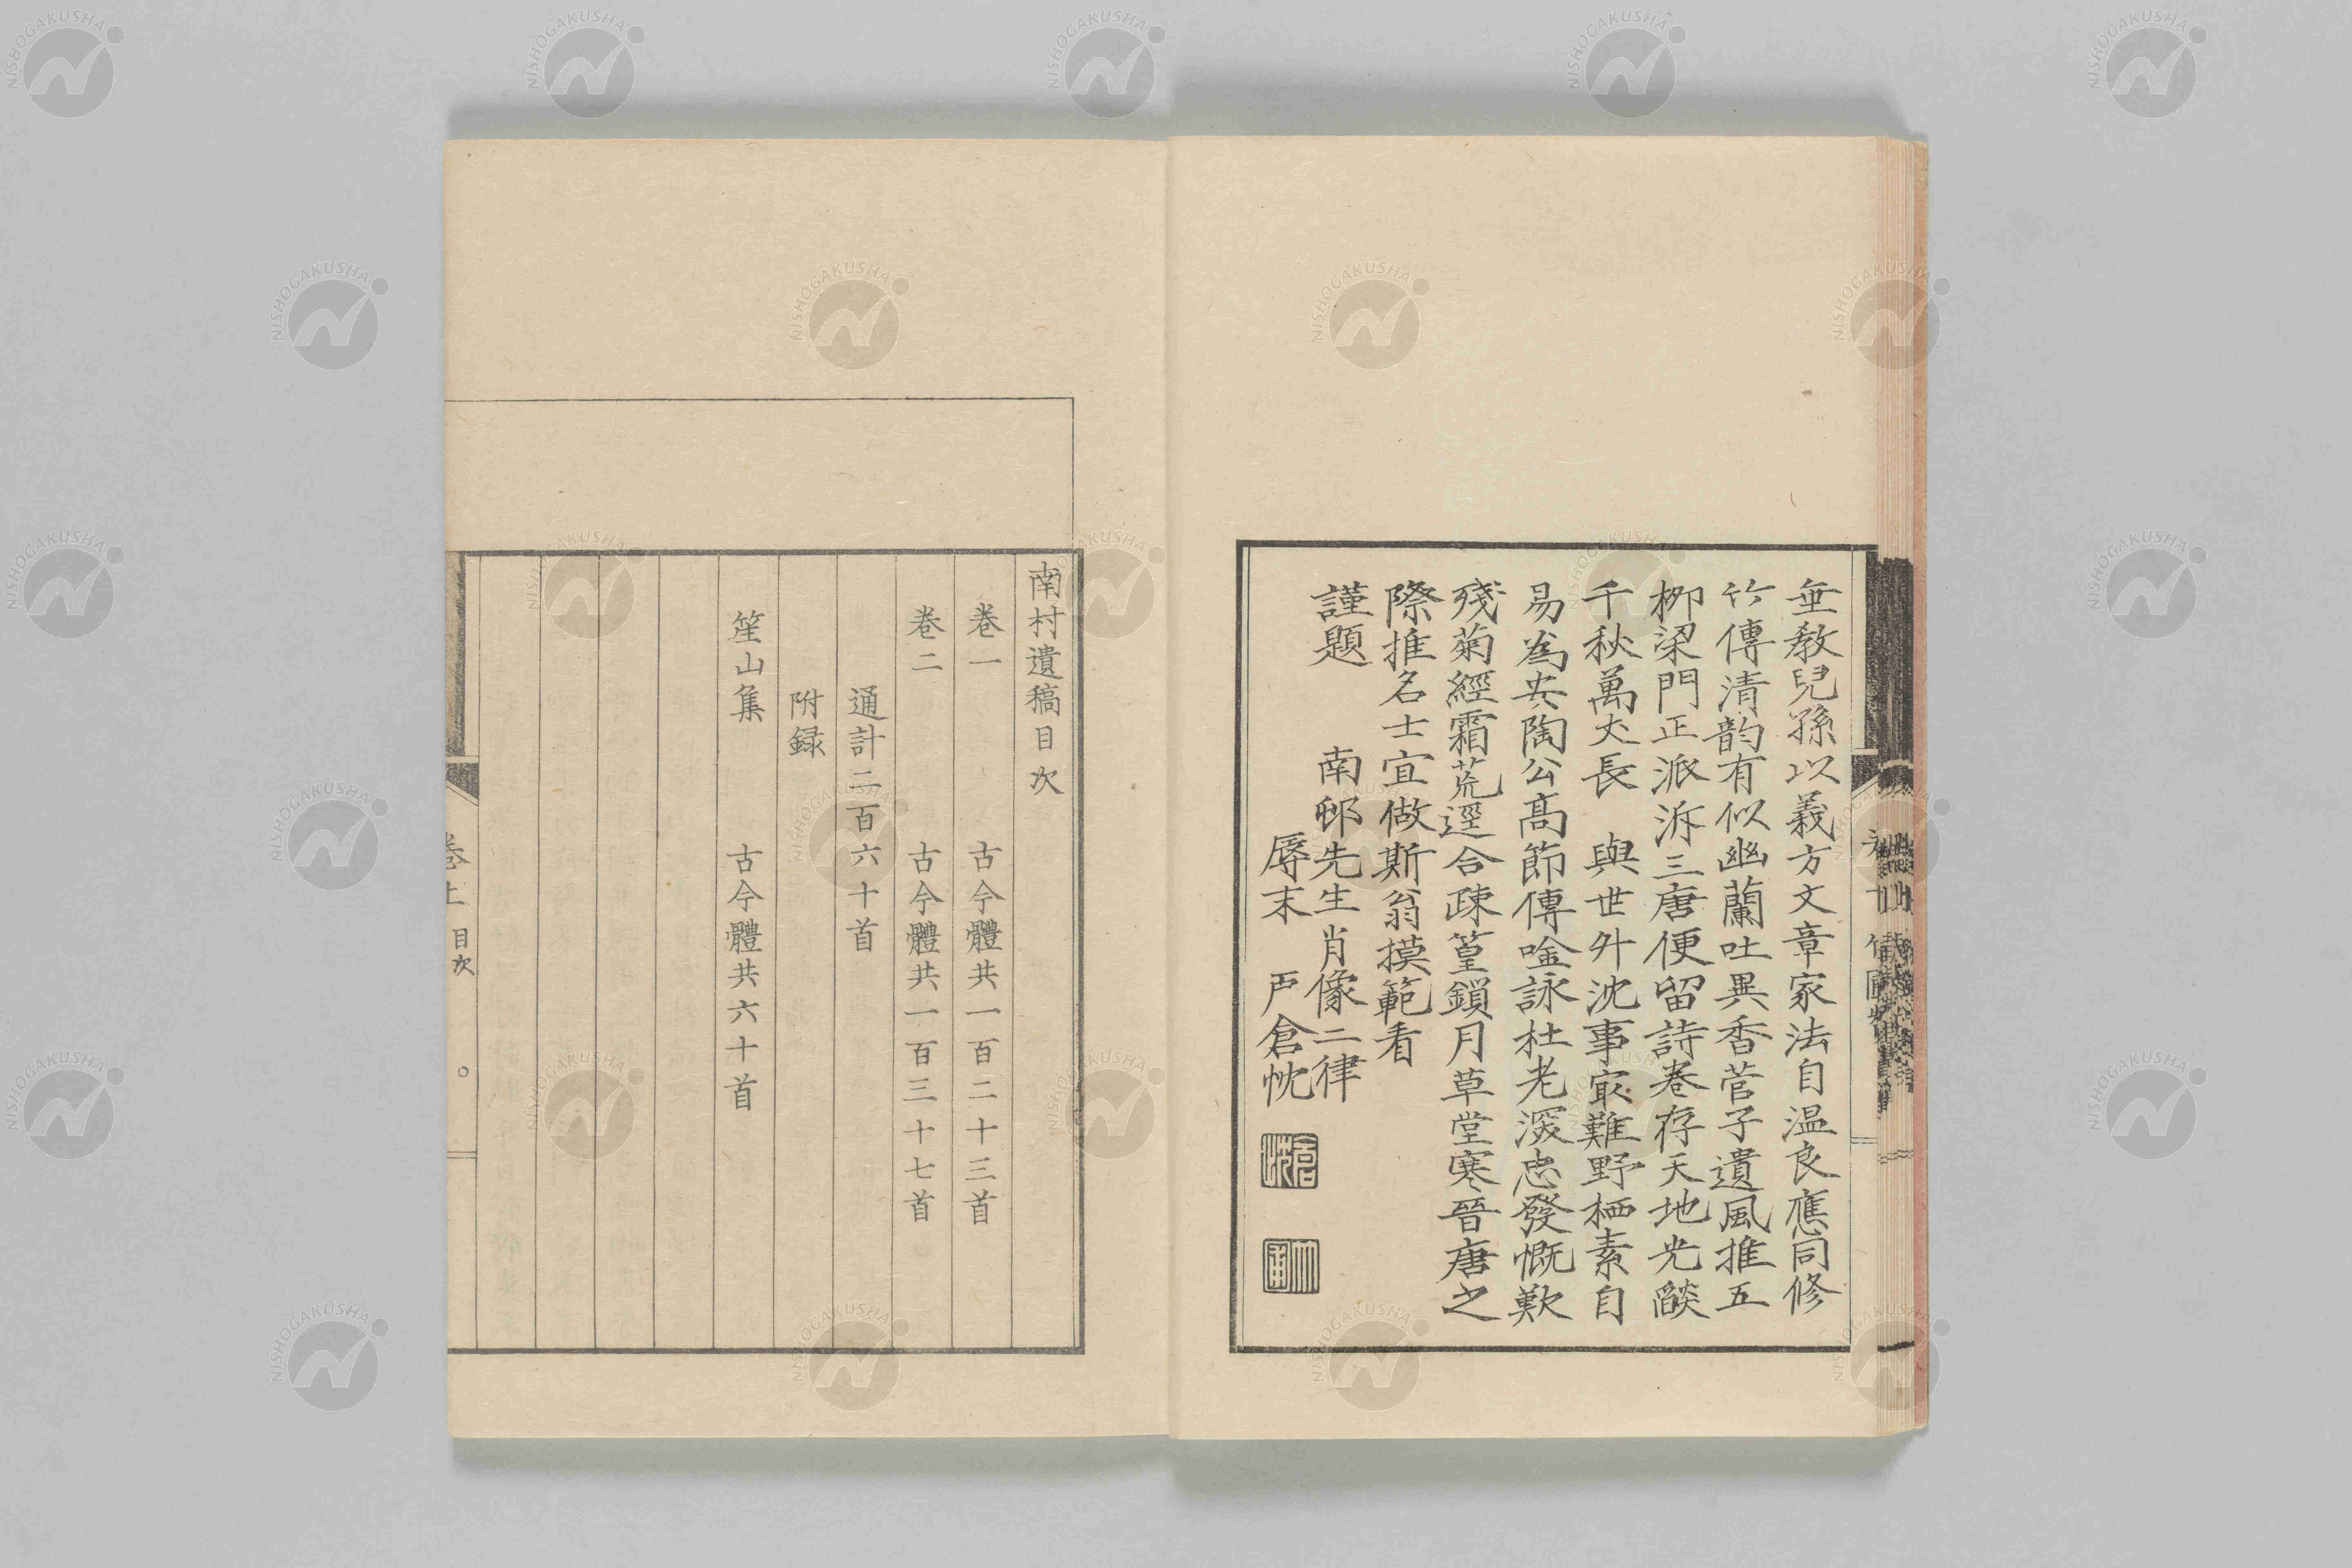 垂敎兒孫以義方文章家法自温良應同修
竹傳清韵有似幽蘭吐異香菅子遺風推五
柳梁門正派泝三唐便留詩卷存天地光燄
千秋萬丈長　與世外沈事最難野栖素自
易為安陶公高節傳唫詠杜老深忠發慨歎
殘菊經霜荒逕合疎篁鎖月草堂寒晉唐之
際推名士宜做斯翁摸範看
謹題　南邨先生肖像二律
辱末　戸倉忱
南村遺稿目次
卷一　古今體共一百二十三首
卷二　古今體共一百三十七首
通計二百六十首
附録
笙山集　古今體共六十首
卷上　目次
NISHOGAKUSHA